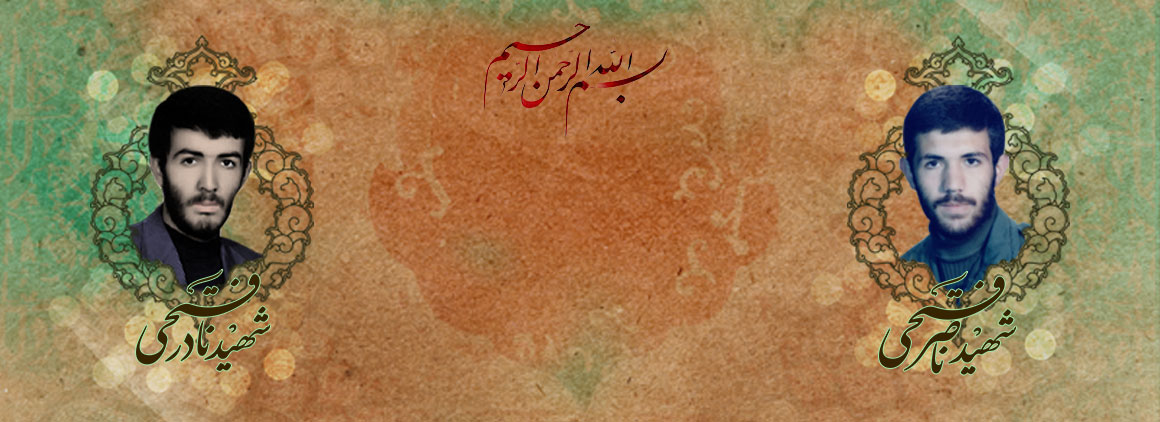 بسم الله الرحمن الرحیم
شهید ناصر فتحی
شهید نادر فتحی